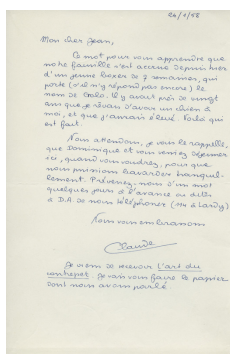 24/1/58
Mon cher Jean,
Ce mot pour vous apprendre que
notre famille s'est accrue depuis hier
d'un jeune boxer de 7 semaines, qui
porte (s'il n'y répond pas encore) le
nom de Italo. Il y avait près de vingt
ans que je rêvais d'avoir un chien à
moi, et que j'aurais élevé. Voilà qui
est fait.
Nous attendons, je vous le rappelle,
que Dominique et vous veniez déjeuner
ici, quand vous voudrez, pour que
nous puissions bavarder tranquil-
lement. Prévenez-nous d'un mot
quelques jours à l'avance ou dites
à D.A. de nous téléphoner (114 à Lardy)
Nous vous embrassons
Claude
Je viens de recevoir l'art du
contrepet. Je vais vous faire le papier
dont nous avons parlé